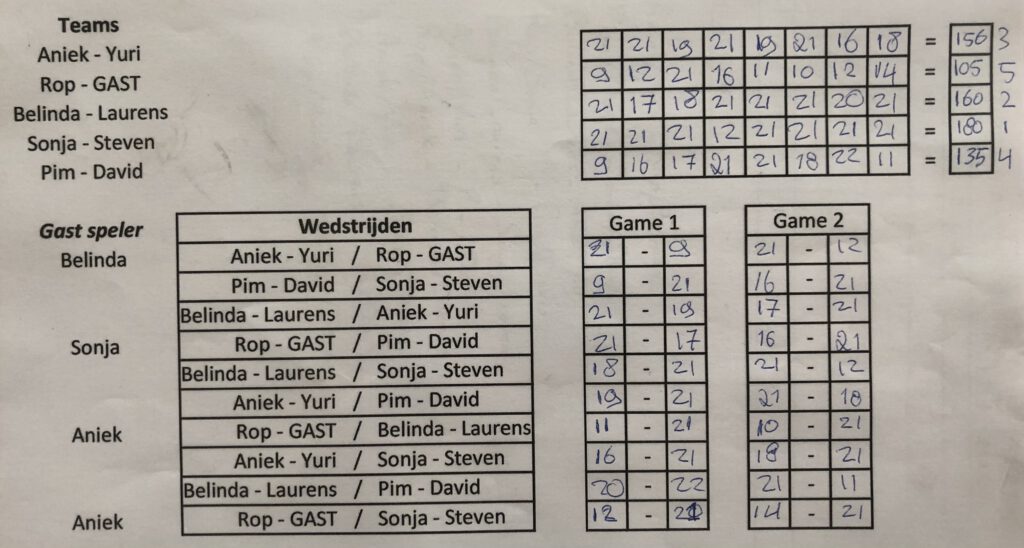 Teams
Aniek - Yuri 21 21 19 21 19 21 16 18 = 156 3
Rop - GAST 9 12 21 16 11 10 12 14 = 105 5
Belinda - Laurens 21 17 18 21 21 21 20 21 = 160 2
Sonja - Steven 21 21 21 12 21 21 21 21 = 180 1
Pim - David 9 16 17 21 21 18 22 11 = 135 4
Gast speler Wedstrijden Game 1 Game 2
Belinda Aniek - Yuri / Rop - GAST 21 - 9 21 - 12
Pim - David / Sonja - Steven 9 - 21 16 - 21
Belinda - Laurens / Aniek - Yuri 21 - 19 17 - 21
Sonja Rop - GAST / Pim - David 21 - 17 16 - 21
Belinda - Laurens / Sonja - Steven 18 - 21 21 - 12
Aniek - Yuri / Pim - David 19 - 21 21 - 18
Aniek Rop - GAST / Belinda - Laurens 11 - 21 10 - 21
Aniek - Yuri / Sonja - Steven 16 - 21 18 - 21
Belinda - Laurens / Pim - David 20 - 22 21 - 11
Aniek Rop - GAST / Sonja - Steven 12 - 21 14 - 21